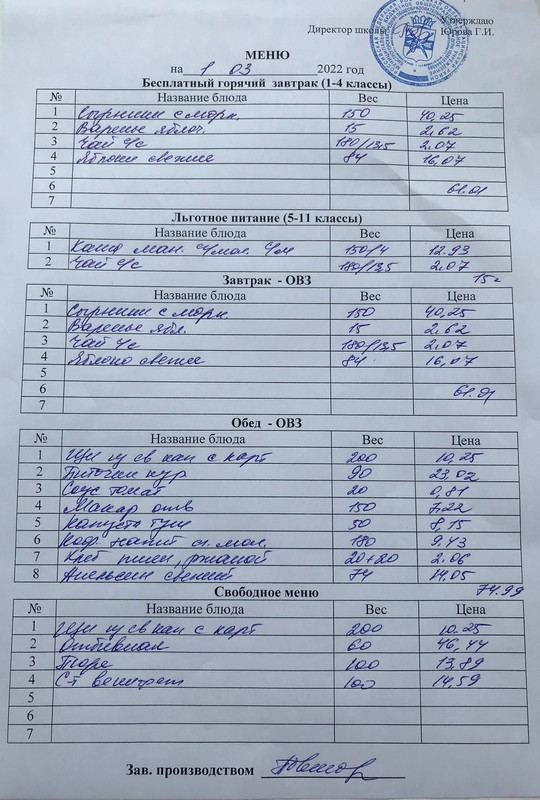 Утверждаю
Директор школы Юрова Г.И.
МЕНЮ
на 1 03 2022 год
Бесплатный горячий завтрак (1-4 классы)
№ Название блюда Вес Цена
1 Сырники с морк. 150 40,25
2 Варенье яблоч. 15 2,62
3 Чай с/с 180/13,5 2,07
4 Яблоки свежие 84 16,07
5
6 61.01
7
Льготное питание (5-11 классы)
№ Название блюда Вес Цена
1 Каша ман. 150/4 12.93
2 Чай с/с 180/13,5 2,07
15
Завтрак - ОВЗ
№ Название блюда Вес Цена
1 Сырники с морк. 150 40,25
2 Варенье ябл. 15 2,62
3 Чай с/с 180/13,5 2,07
4 Яблоко свежие 84 16,07
5
6 61.01
7
Обед - ОВЗ
№ Название блюда Вес Цена
1 Щи из св кап с карт 200 10,25
2 Биточки кур 90 23,02
3 Соус томат 20 0,81
4 Макар отв 150 7,22
5 Капуста туш 50 8,15
6 Коф. напит сг. мол. 180 9.43
7 Хлеб пшен, ржаной 20+20 2.06
8 Апельсин свежий 74 14.05
74.99
Свободное меню
№ Название блюда Вес Цена
1 Щи из св кап с карт 200 10.25
2 Отбивная 60 46,44
3 Пюре 100 13,89
4 С-т винегрет 100 14,59
5
6
7
Зав. производством